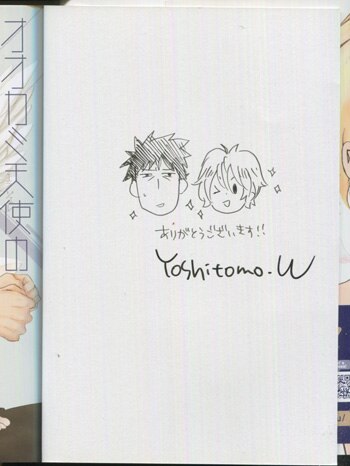 オオカミ天使の
ありがとうございます!!
Yoshitomo.W